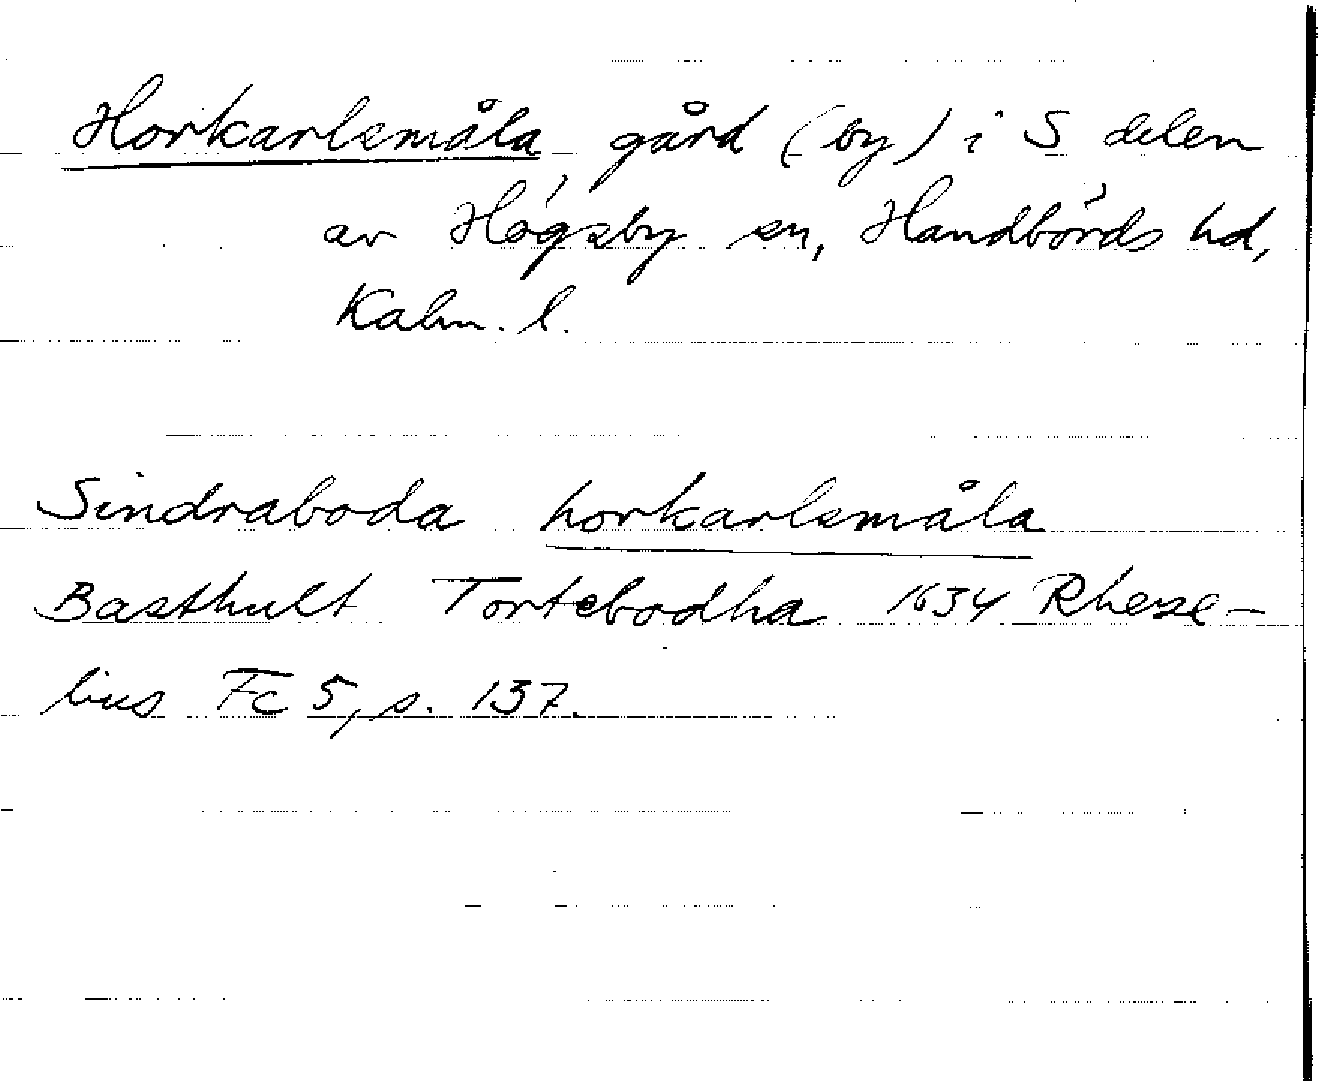 Horkarlsmåla, gård (by) i S delen
av Högsby sn, Handbörds hd,
Kalm. l.
Sindraboda horkarlsmåla
Basthult Tortebodha 1634 Rheze-
lius Fc 5, s. 137.